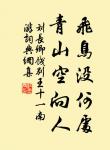 飛鳥沒何處
青山空向人
劉長卿餞別王十一南
游詞典網真